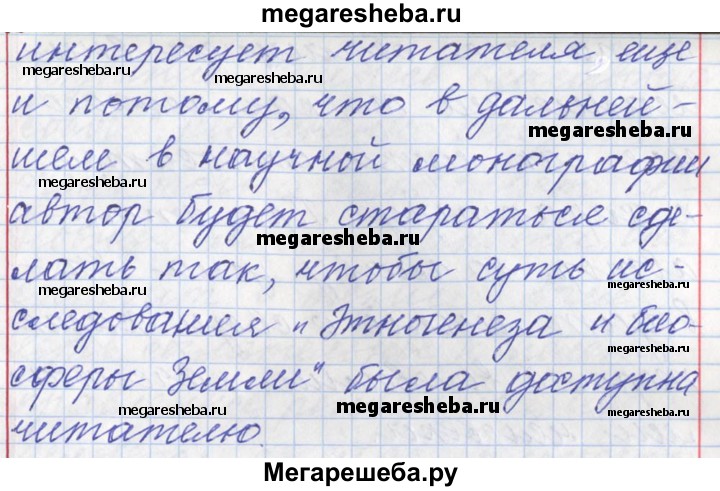 megaresheba.ru
интересует читателя еще
megaresheba.ru
megaresheba.ru
и потому, что в дальней-
megaresheba.ru
шем в научной монографии
megaresheba.ru
автор будет стараться сде-
megaresheba.ru
лать так, чтобы суть ис-
megaresheba.ru
megaresheba.ru
следования "Этногенеза и био-
megaresheba.ru
сферы Земли" была доступна
megaresheba.ru
megaresheba.ru
megaresheba.ru
читателю.
Мегарешеба.ру